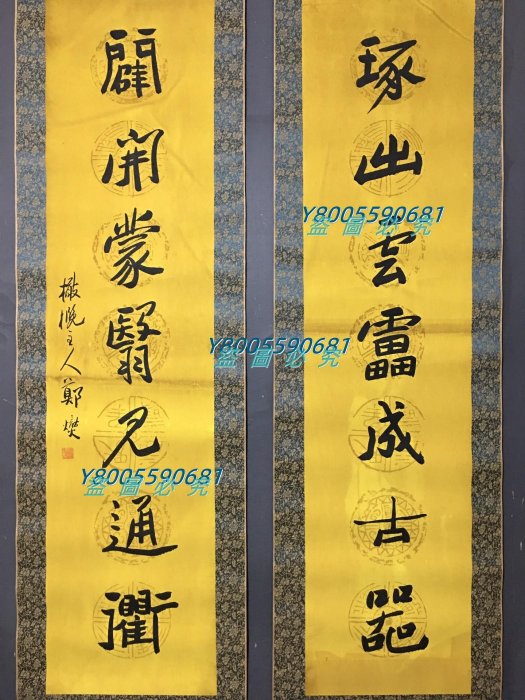 琢出雲靁成古器
闢開蒙翳見通衢
主人鄭燮
Y8005590681
盗圖必究
Y8005590681
盗圖必究
Y8005590681
盗圖必究